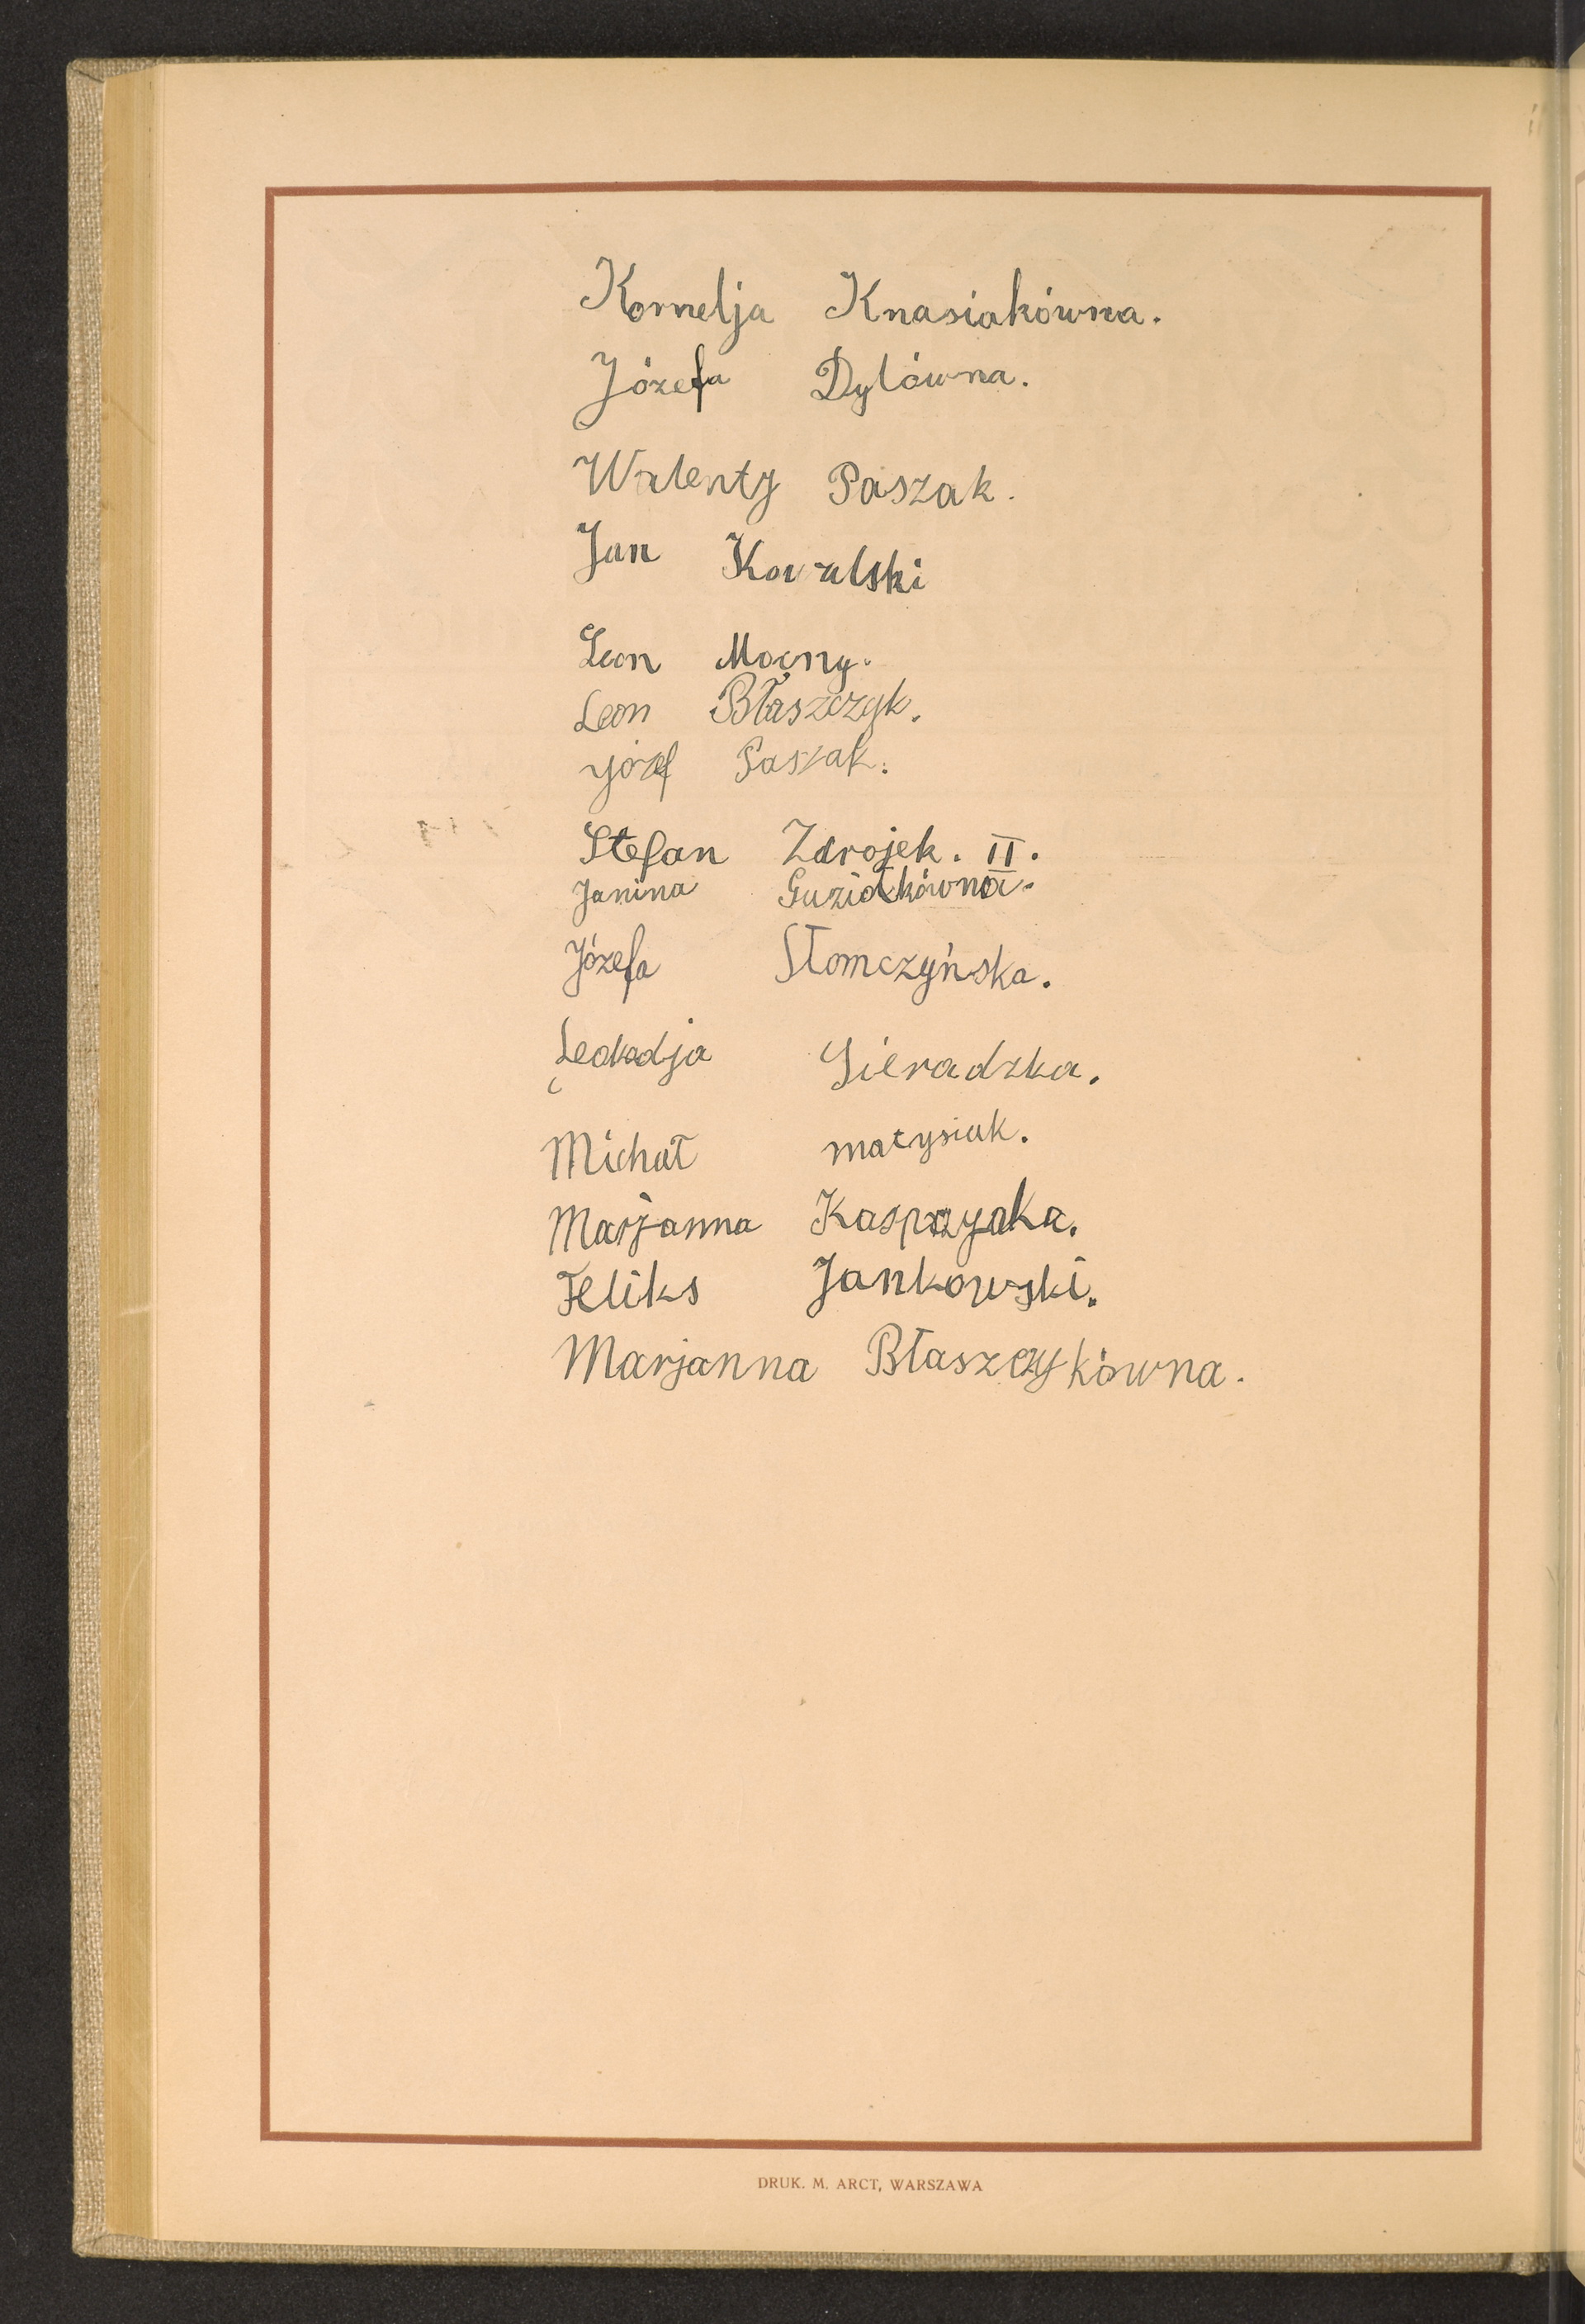 Kornelja Knasiakówna.
Józefa Dylówna.
Walenty Paszak.
Jan Kowalski
Leon Mocny.
Leon Błaszczyk.
Józef Paszak.
Stefan Zdrojek. II.
Janina Guziołkówna.
Józefa Słomczyńska.
Leokadja Sieradzka.
Michał matysiak.
Marjanna
Feliks Jankowski.
Marjanna Błaszczykówna.
DRUK. M. ARCT, WARSZAWA